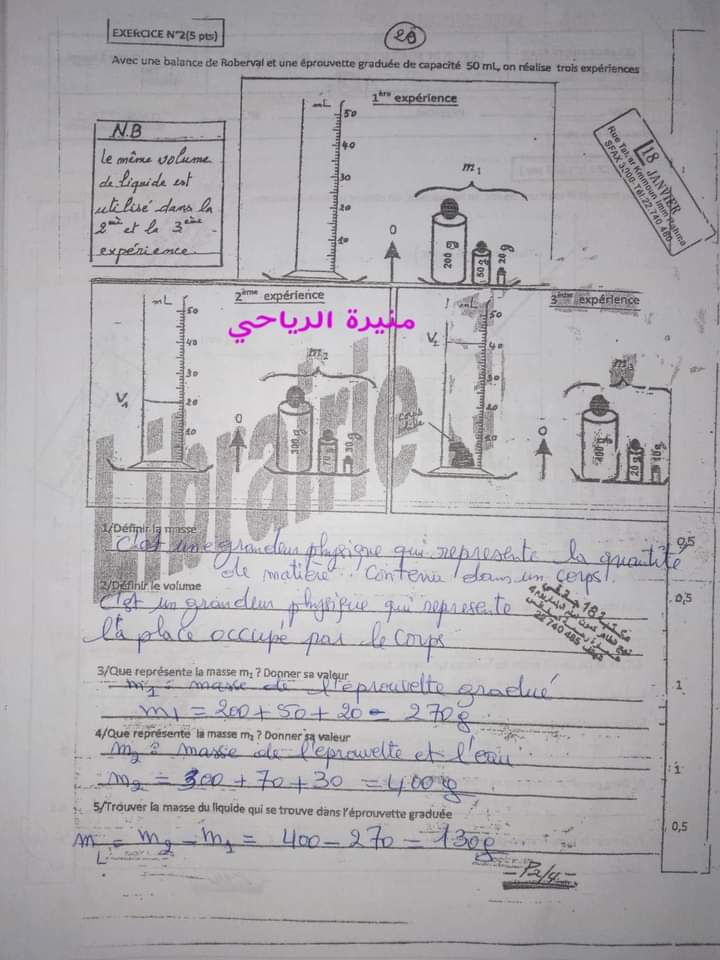 EXERCICE N°2(5 pts)
20
Avec une balance de Roberval et une éprouvette graduée de capacité 50 mL, on réalise trois expériences
N.B
le même volume
de liquide est
utilisé dans la
2ème et la 3ème
expérience.
1ère expérience
mL
50
40
30
20
10
m1
0
200 g
50 g
20 g
18 JANVIER
Rue Taher Kammoun Imm Rahma
SFAX 3000-Tél 22 740 485
2ème expérience
mL
50
40
30
20
10
V1
m2
0
300 g
70 g
30 g
منيرة الرياحي
3ème expérience
mL
50
40
30
20
10
V2
m3
0
400 g
20 g
10 g
Librairie
1/Définir la masse
0,5
C'est une grandeur physique qui représente la quantité
de matière contenu dans un corps.
2/Définir le volume
0,5
C'est un grandeur physique qui représente
la place occupé par le corps
22 740 485
3/Que représente la masse m1 ? Donner sa valeur
1
m1 : masse de l'éprouvette gradué
m1 = 200 + 50 + 20 = 270g
4/Que représente la masse m2 ? Donner sa valeur
1
m2 : masse de l'éprouvette et l'eau
m2 = 300 + 70 + 30 = 400g
5/Trouver la masse du liquide qui se trouve dans l'éprouvette graduée
0,5
mL = m2 - m1 = 400 - 270 = 130g
- P2/4 -